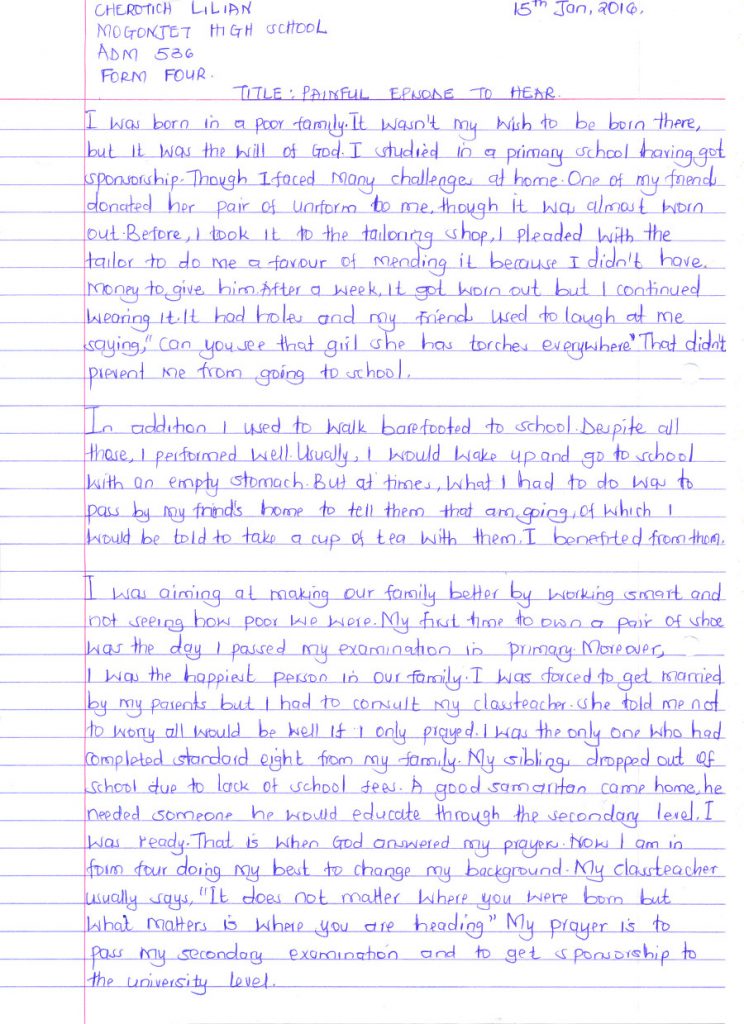 CHEROTICH LILIAN 15th Jan, 2016.
MOGONJET HIGH SCHOOL
ADM 536
FORM FOUR.
TITLE: PAINFUL EPISODE TO HEAR.
I was born in a poor family. It wasn't my wish to be born there,
but it was the will of God. I studied in a primary school having got
sponsorship. Though I faced many challenges at home. One of my friends
donated her pair of uniform to me, though it was almost worn
out. Before, I took it to the tailoring shop, I pleaded with the
tailor to do me a favour of mending it because I didn't have.
money to give him. After a week, it got worn out but I continued
wearing it. It had holes and my friends used to laugh at me
saying, "can you see that girl she has torches everywhere" That didn't
prevent me from going to school.
In addition I used to walk barefooted to school. Despite all
those, I performed well. Usually, I would wake up and go to school
with an empty stomach. But at times, what I had to do was to
pass by my frind's home to tell them that am going, of which I
would be told to take a cup of tea with them. I benefited from them.
I was aiming at making our family better by working smart and
not seeing how poor we were. My first time to own a pair of shoe
was the day I passed my examination in primary. Moreover,
I was the happiest person in our family. I was forced to get married
by my parents but I had to consult my classteacher. she told me not
to worry all would be well if I only prayed. I was the only one who had
completed standard eight from my family. My siblings dropped out of
school due to lack of school fees. A good samaritan came home, he
needed someone he would educate through the secondary level. I
was ready. That is when God answered my prayers. Now I am in
form four doing my best to change my background. My classteacher
usually says, "It does not matter where you were born but
what matters is where you are heading" My prayer is to
pass my secondary examination and to get sponsorship to
the university level.